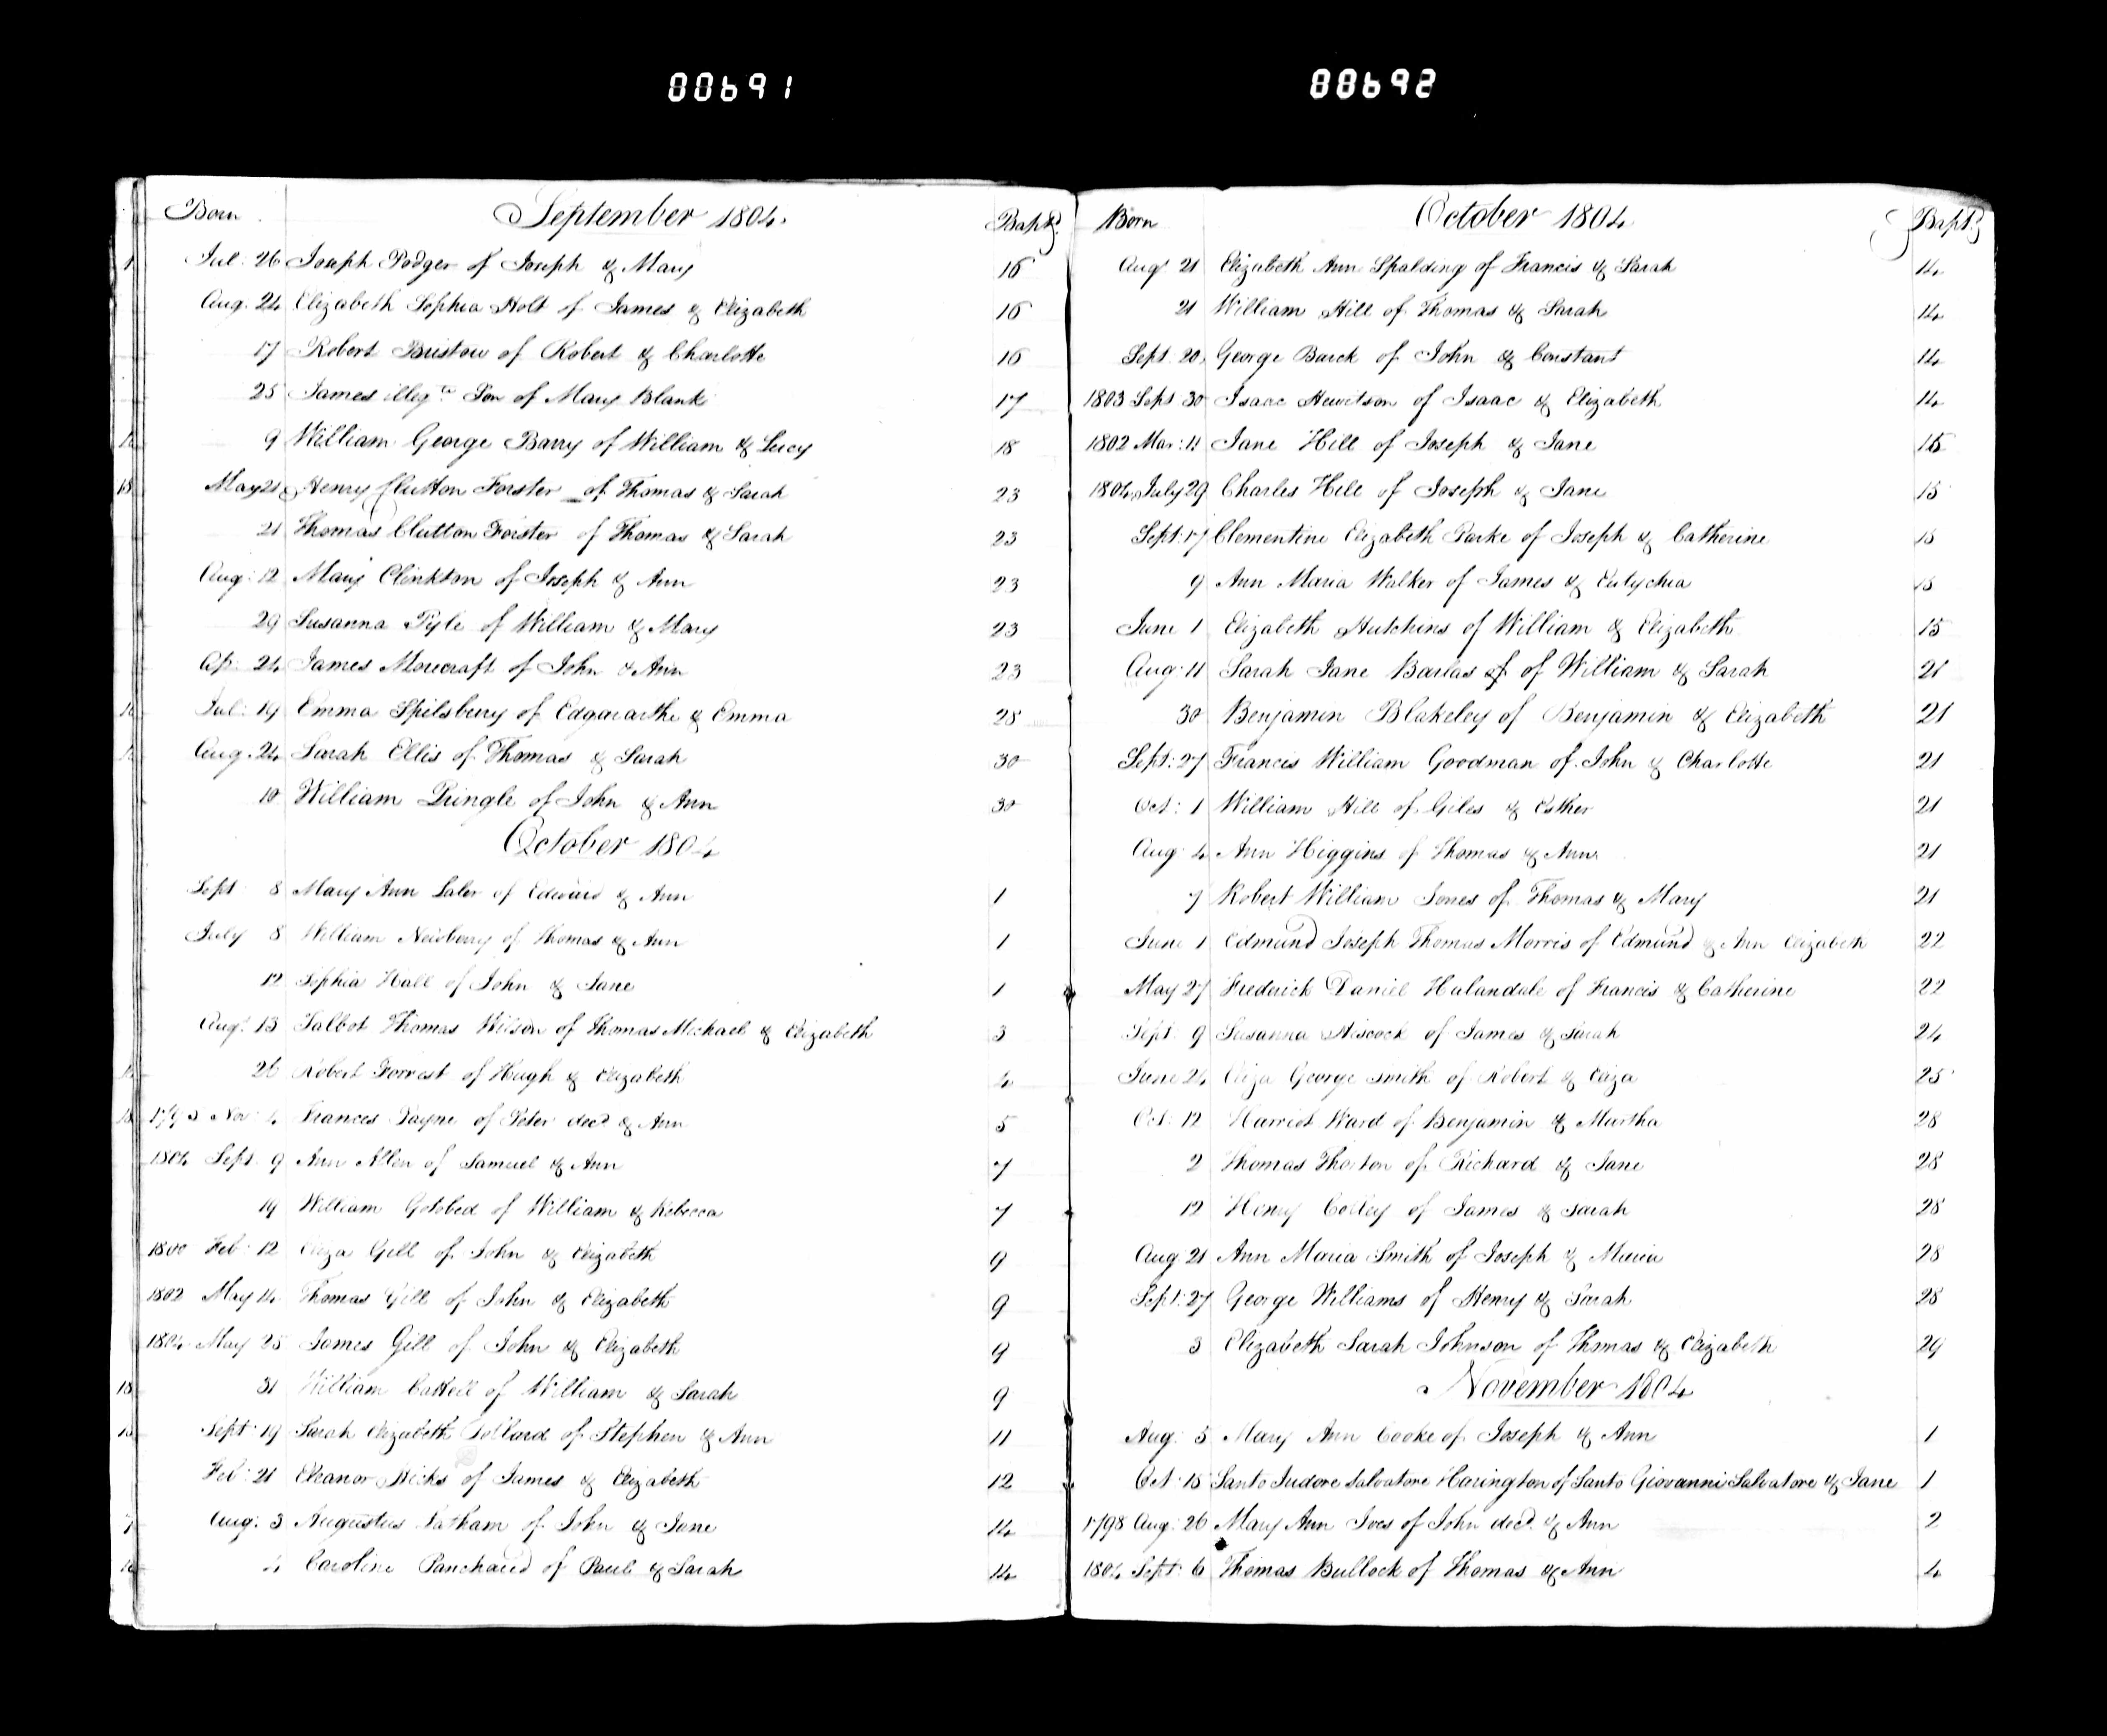 88691
88692
Born September 1804. Baptz.d
Jul: 26 Joseph Podger of Joseph & Mary 16
Aug. 24 Elizabeth Sophia Holt of James & Elizabeth 16
17 Robert Bristow of Robert & Charlotte 16
25 James illeg.te Son of Mary Blank 17
9 William George Barry of William & Lucy 18
May 21 Henry Clutton Forster of Thomas & Sarah 23
21 Thomas Clutton Forster of Thomas & Sarah 23
Aug: 12 Mary Clinkton of Joseph & Ann 23
29 Susanna Pyle of William & Mary 23
Ap: 24 James Morecraft of John & Ann 23
Jul: 19 Emma Spilsbury of & Emma 28
Aug. 24 Sarah Ellis of Thomas & Sarah 30
10 William Pringle of John & Ann 30
October 1804
Sept 8 Mary Ann Laler of Edward & Ann 1
July 8 William Newberry of Thomas & Ann 1
12 Sophia Hall of John & Jane 1
Aug.t 13 Talbot Thomas Wilson of Thomas Michael & Elizabeth 3
26 Robert Forrest of Hugh & Elizabeth 4
Nov: 4 Frances Payne of Peter dec.d & Ann 5
1804 Sept. 9 Ann Allen of Samuel & Ann 7
19 William Gotobed of William & Rebecca 7
1800 Feb: 12 Eliza Gill of John & Elizabeth 9
1802 May 14 Thomas Gill of John & Elizabeth 9
1804 May 25 James Gill of John & Elizabeth 9
31 William Cattell of William & Sarah 9
Sept: 19 Sarah Elizabeth Pollard of Stephen & Ann 11
Feb: 21 Eleanor Hicks of James & Elizabeth 12
Aug: 3 Augustus Latham of John & Jane 14
4 Caroline Panchaud of Paul & Sarah 14
Born October 1804 Bapt.z
Aug.t 21 Elizabeth Ann Spalding of Francis & Sarah 14
21 William Hill of Thomas & Sarah 14
Sept. 20 George Barck of John & Constant 14
1803 Sept 30 Isaac Hewitson of Isaac & Elizabeth 14
1802 Mar: 11 Jane Hill of Joseph & Jane 15
1804 July 29 Charles Hill of Joseph & Jane 15
Sept: 17 Clementine Elizabeth Parke of Joseph & Catherine 15
9 Ann Maria Walker of James & Eutychia 15
June 1 Elizabeth Hutchins of William & Elizabeth 15
Aug: 11 Sarah Jane Barlas of of William & Sarah 21
30 Benjamin Blakeley of Benjamin & Elizabeth 21
Sept: 27 Francis William Goodman of John & Charlotte 21
Oct: 1 William Hill of Giles & Esther 21
Aug: 4 Ann Higgins of Thomas & Ann 21
7 Robert William Jones of Thomas & Mary 21
June 1 Edmund Joseph Thomas Morris of Edmund & Ann Elizabeth 22
May 27 Frederick Daniel Halandale of Francis & Catherine 22
Sept: 9 Susanna Hiscock of James & Sarah 24
June 24 Eliza George Smith of Robert & Eliza 25
Oct: 12 Harriot Ward of Benjamin & Martha 28
2 Thomas Thorton of Richard & Jane 28
12 Henry Colley of James & Sarah 28
Aug: 21 Ann Maria Smith of Joseph & Maria 28
Sept: 27 George Williams of Henry & Sarah 28
3 Elizabeth Sarah Johnson of Thomas & Elizabeth 29
November 1804
Aug: 5 Mary Ann Cooke of Joseph & Ann 1
Oct: 15 Santo Isidore Salvatore Harington of Santo Giovanni Salvatore & Jane 1
1798 Aug: 26 Mary Ann Ives of John dec.d & Ann 2
1804 Sept: 6 Thomas Bullock of Thomas & Ann 4